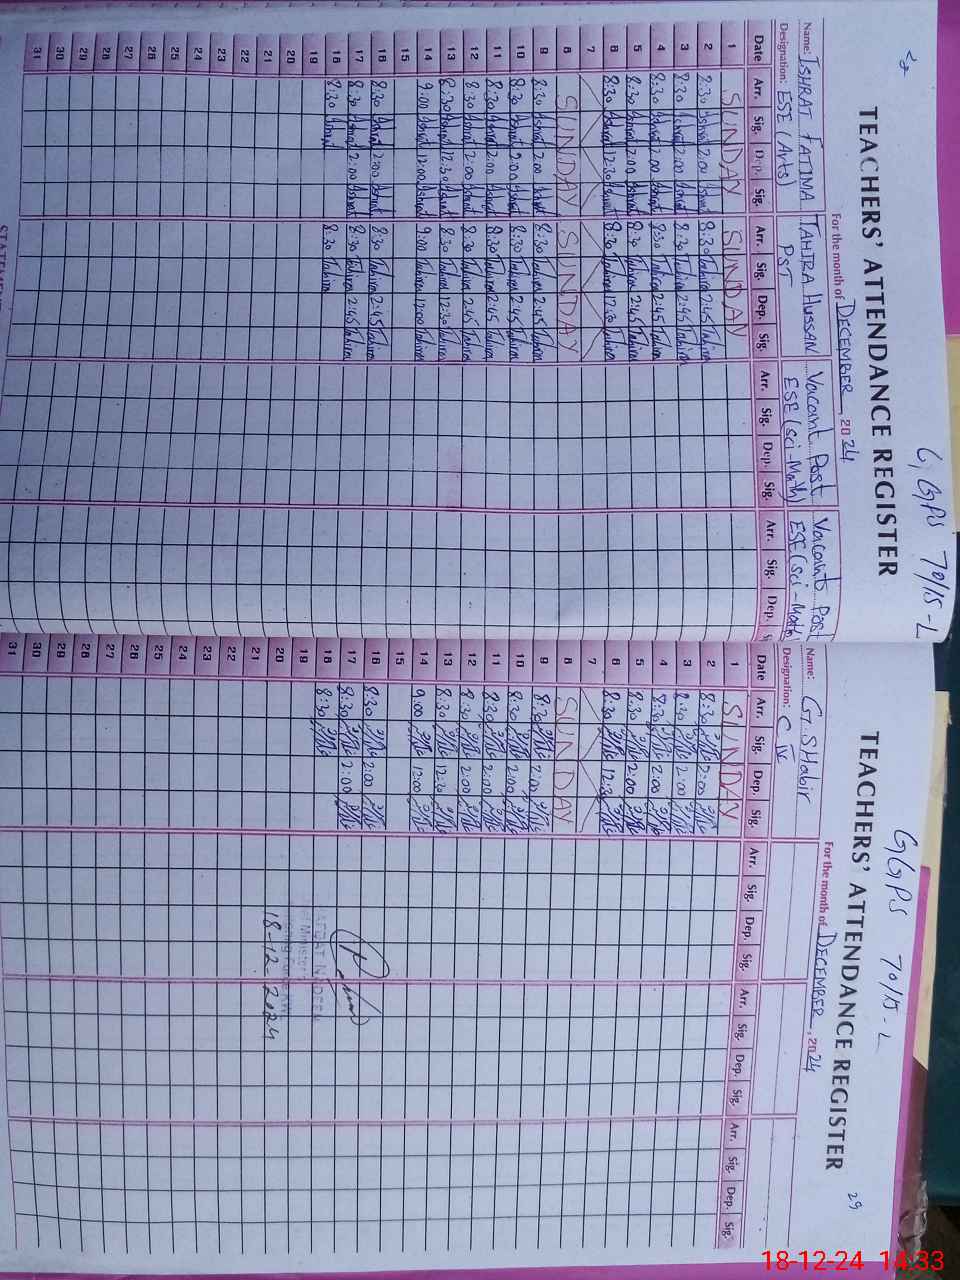 G.GPS 70/15-L
TEACHERS' ATTENDANCE REGISTER
For the month of DECEMBER, 2024
Name: ISHRAT FATIMA TAHIRA HUSSAN Vacant Post Vacant Post
Designation: ESE (Arts) PST ESE (Sci-Math) ESE (Sci-Math)
Date Arr. Sig. Dep. Sig. Arr. Sig. Dep. Sig. Arr. Sig. Dep. Sig. Arr. Sig. Dep.
1 SUNDAY SUNDAY
2 8:30 Ishrat 2:00 Ishrat 8:30 Tahira 2:45 Tahira
3 8:30 Ishrat 2:00 Ishrat 8:30 Tahira 2:45 Tahira
4 8:30 Ishrat 2:00 Ishrat 8:30 Tahira 2:45 Tahira
5 8:30 Ishrat 2:00 Ishrat 8:30 Tahira 2:45 Tahira
6 8:30 Ishrat 12:30 Ishrat 8:30 Tahira 12:30 Tahira
7
8 SUNDAY SUNDAY
9 8:30 Ishrat 2:00 Ishrat 8:30 Tahira 2:45 Tahira
10 8:30 Ishrat 2:00 Ishrat 8:30 Tahira 2:45 Tahira
11 8:30 Ishrat 2:00 Ishrat 8:30 Tahira 2:45 Tahira
12 8:30 Ishrat 2:00 Ishrat 8:30 Tahira 2:45 Tahira
13 8:30 Ishrat 12:30 Ishrat 8:30 Tahira 12:30 Tahira
14 9:00 Ishrat 12:00 Ishrat 9:00 Tahira 12:00 Tahira
15
16 8:30 Ishrat 2:00 Ishrat 8:30 Tahira 2:45 Tahira
17 8:30 Ishrat 2:00 Ishrat 8:30 Tahira 2:45 Tahira
18 8:30 Ishrat 8:30 Tahira
19
20
21
22
23
24
25
26
27
28
29
30
31
GGPS 70/15-L
29
TEACHERS' ATTENDANCE REGISTER
For the month of DECEMBER, 2024
Name: G. SHabir
Designation: C IV
Date Arr. Sig. Dep. Sig. Arr. Sig. Dep. Sig. Arr. Sig. Dep. Sig. Arr. Sig. Dep. Sig.
1 SUNDAY
2 8:30 2:00
3 8:30 2:00
4 8:30 2:00
5 8:30 2:00
6 8:30 12:30
7
8 SUNDAY
9 8:30 2:00
10 8:30 2:00
11 8:30 2:00
12 8:30 2:00
13 8:30 12:30
14 9:00 12:00
15
16 8:30 2:00
17 8:30 2:00
18 8:30
19
20
21
22
23
24
25
26
27
28
29
30
31
18-12-2024
18-12-24 14:33